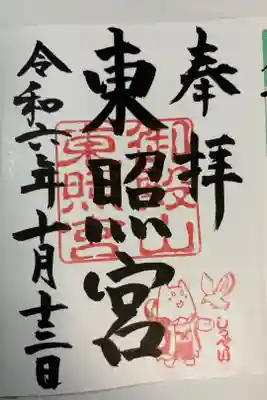 奉拝
東照宮
令和六年十月十三日
御殿山
東照宮
しっぺい